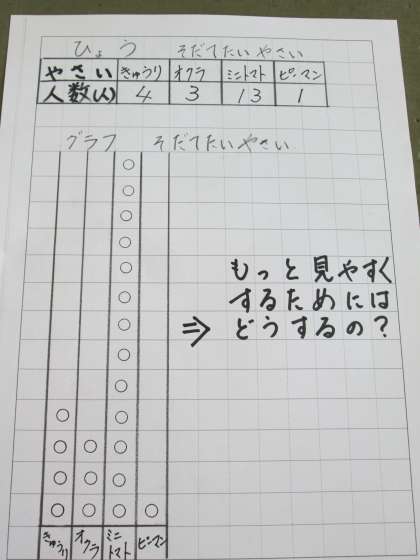 ひょう そだてたいやさい
やさい きゅうり オクラ ミニトマト ピーマン
人数(人) 4 3 13 1
グラフ そだてたいやさい
もっと見やすく
するためには
⇒ どうするの?
きゅうり オクラ ミニトマト ピーマン